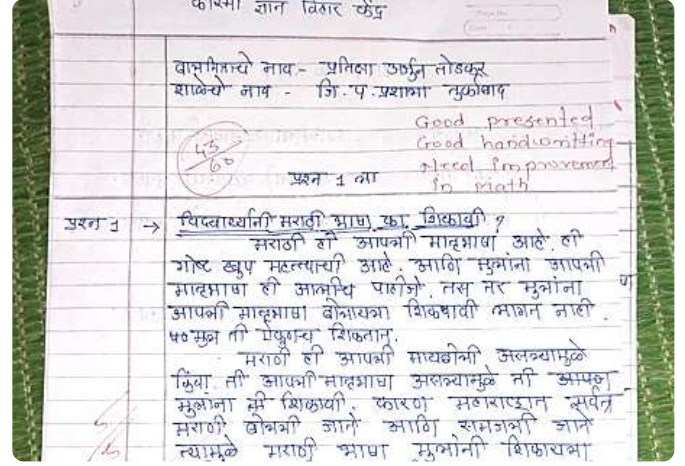 ज्ञान विहार केंद्र
नाव - प्रमिला अर्जुन तोडकर
शाळेचे नाव - जि. प. प्रशाला तुकोबाद
Good presented
Good handwritting
43/60
Need Improvement
प्रश्न 1 ला
in Math
प्रश्न 1 → विद्यार्थ्यांनी मराठी भाषा का शिकावी ?
मराठी ही आपली मातृभाषा आहे. ही
गोष्ट खुप महत्त्वाची आहे. आणि मुलांना आपली
मातृभाषा ही आलीच पाहीजे. तस तर मुलांना
आपली मातृभाषा बोलायला शिकवावी लागत नाही.
ती ऐकुनच शिकतात.
मराठी ही आपली मायबोली असल्यामुळे
किंवा ती आपली मातृभाषा असल्यामुळे ती आपण
मुलांना शिकावी. कारण महाराष्ट्रात सर्वत्र
मराठी बोलली जाते आणि समजली जाते
त्यामुळे मराठी भाषा मुलांनी शिकायला